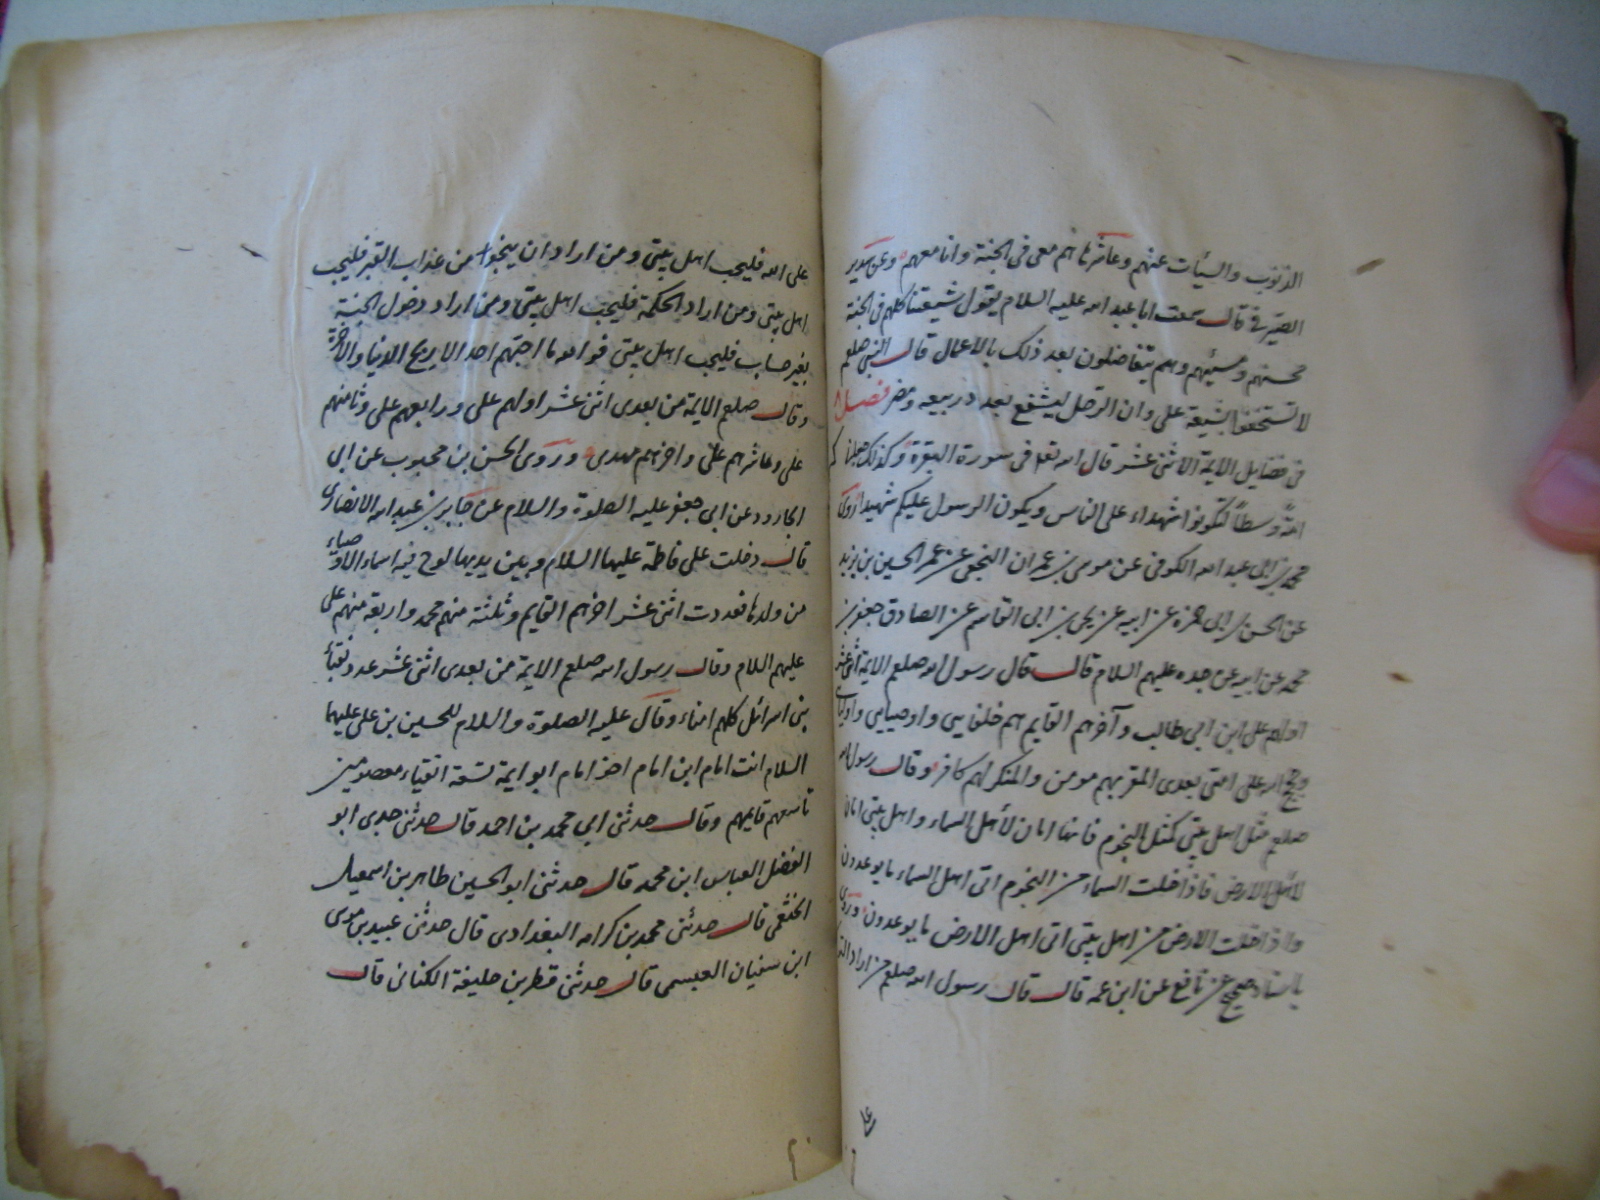 الذنوب والسيئات عنهم وعاشرها هم معى فى الجنة وانا معهم وعن سدير
الصيرفى قال سمعت ابا عبد الله عليه السلام يقول شيعتنا كلهم فى الجنة
محسنهم ومسيئهم وهم يتفاضلون بعد ذلك بالاعمال قال النبى صلعم
لا تستخفوا بشيعة على وان الرجل ليشفع بعدد ربيعه ومضر فصل
فى فضايل الايمة الاثنى عشر قال الله تعا فى سورة البقرة وكذلك جعلناكم
امة وسطاً لتكونوا شهداء على الناس ويكون الرسول عليكم شهيدا روى
محمد بن ابى عبد الله الكوفى عن موسى بن عمران النخعى عن عمه الحسين بن يزيد
عن الحسن بن ابى حمزه عن ابيه عن يحيى بن ابى القاسم عن الصادق جعفر بن
محمد عن ابيه عن جده عليهم السلام قال قال رسول الله صلعم الايمة اثنى عشر
اولهم على ابن ابى طالب وآخرهم القايم هم خلفايى واوصيايى واوليائى
وحجج الله على امتى بعدى المقر بهم مومن والمنكر لهم كافر وقال رسول الله
صلعم مثل اهل بيتى كمثل النجوم فانها امان لأهل السماء واهل بيتى امان
لأهل الارض فاذا خلت السماء من النجوم اتى اهل السماء ما يوعدون
واذا خلت الارض من اهل بيتى اتى اهل الارض ما يوعدون وروى
باسناد صحيح عن نافع عن ابن عمه قال قال رسول الله صلعم من اراد التوكل
على الله فليحب اهل بيتى ومن اراد ان ينجوا من عذاب القبر فليحب
اهل بيتى ومن اراد الحكمة فليحب اهل بيتى ومن اراد دخول الجنة
بغير حساب فليحب اهل بيتى فوالله ما احبهم احد الا ربح الدنيا والاخرة
وقال صلعم الايمة من بعدى اثنى عشر اولهم على ورابعهم على وثامنهم
على وعاشرهم علىّ واخرهم مهدى وروى الحسن بن محبوب عن ابى
الجارود عن ابى جعفر عليه الصلوة والسلام عن جابر بن عبد الله الانصارى
قال دخلت على فاطمة عليها السلام وبين يديها لوح فيه اسماء الاوصياء
من ولدها فعددت اثنى عشر اخرهم القايم وثلثة منهم محمد واربعة منهم على
عليهم السلام وقال رسول الله صلعم الايمة من بعدى اثنى عشر عدد نقباء
بنى اسرائل كلهم امناء وقال عليه الصلوة والسلام للحسين بن على عليهما
السلام انت امام ابن امام اخو امام ابو ايمة تسعة اتقياء معصومين
تاسعهم قايمهم وقال حدثنى ابى محمد بن احمد قال حدثنى جدى ابو
الفضل العباس ابن محمد قال حدثنى ابو الحسين طاهر بن اسمعيل
الخثعمى قال حدثنى محمد بن كرامه البغدادى قال حدثنى عبيد بن موسى
ابن سفيان العبسى قال حدثنى قطر بن خليفة الكنانى قال